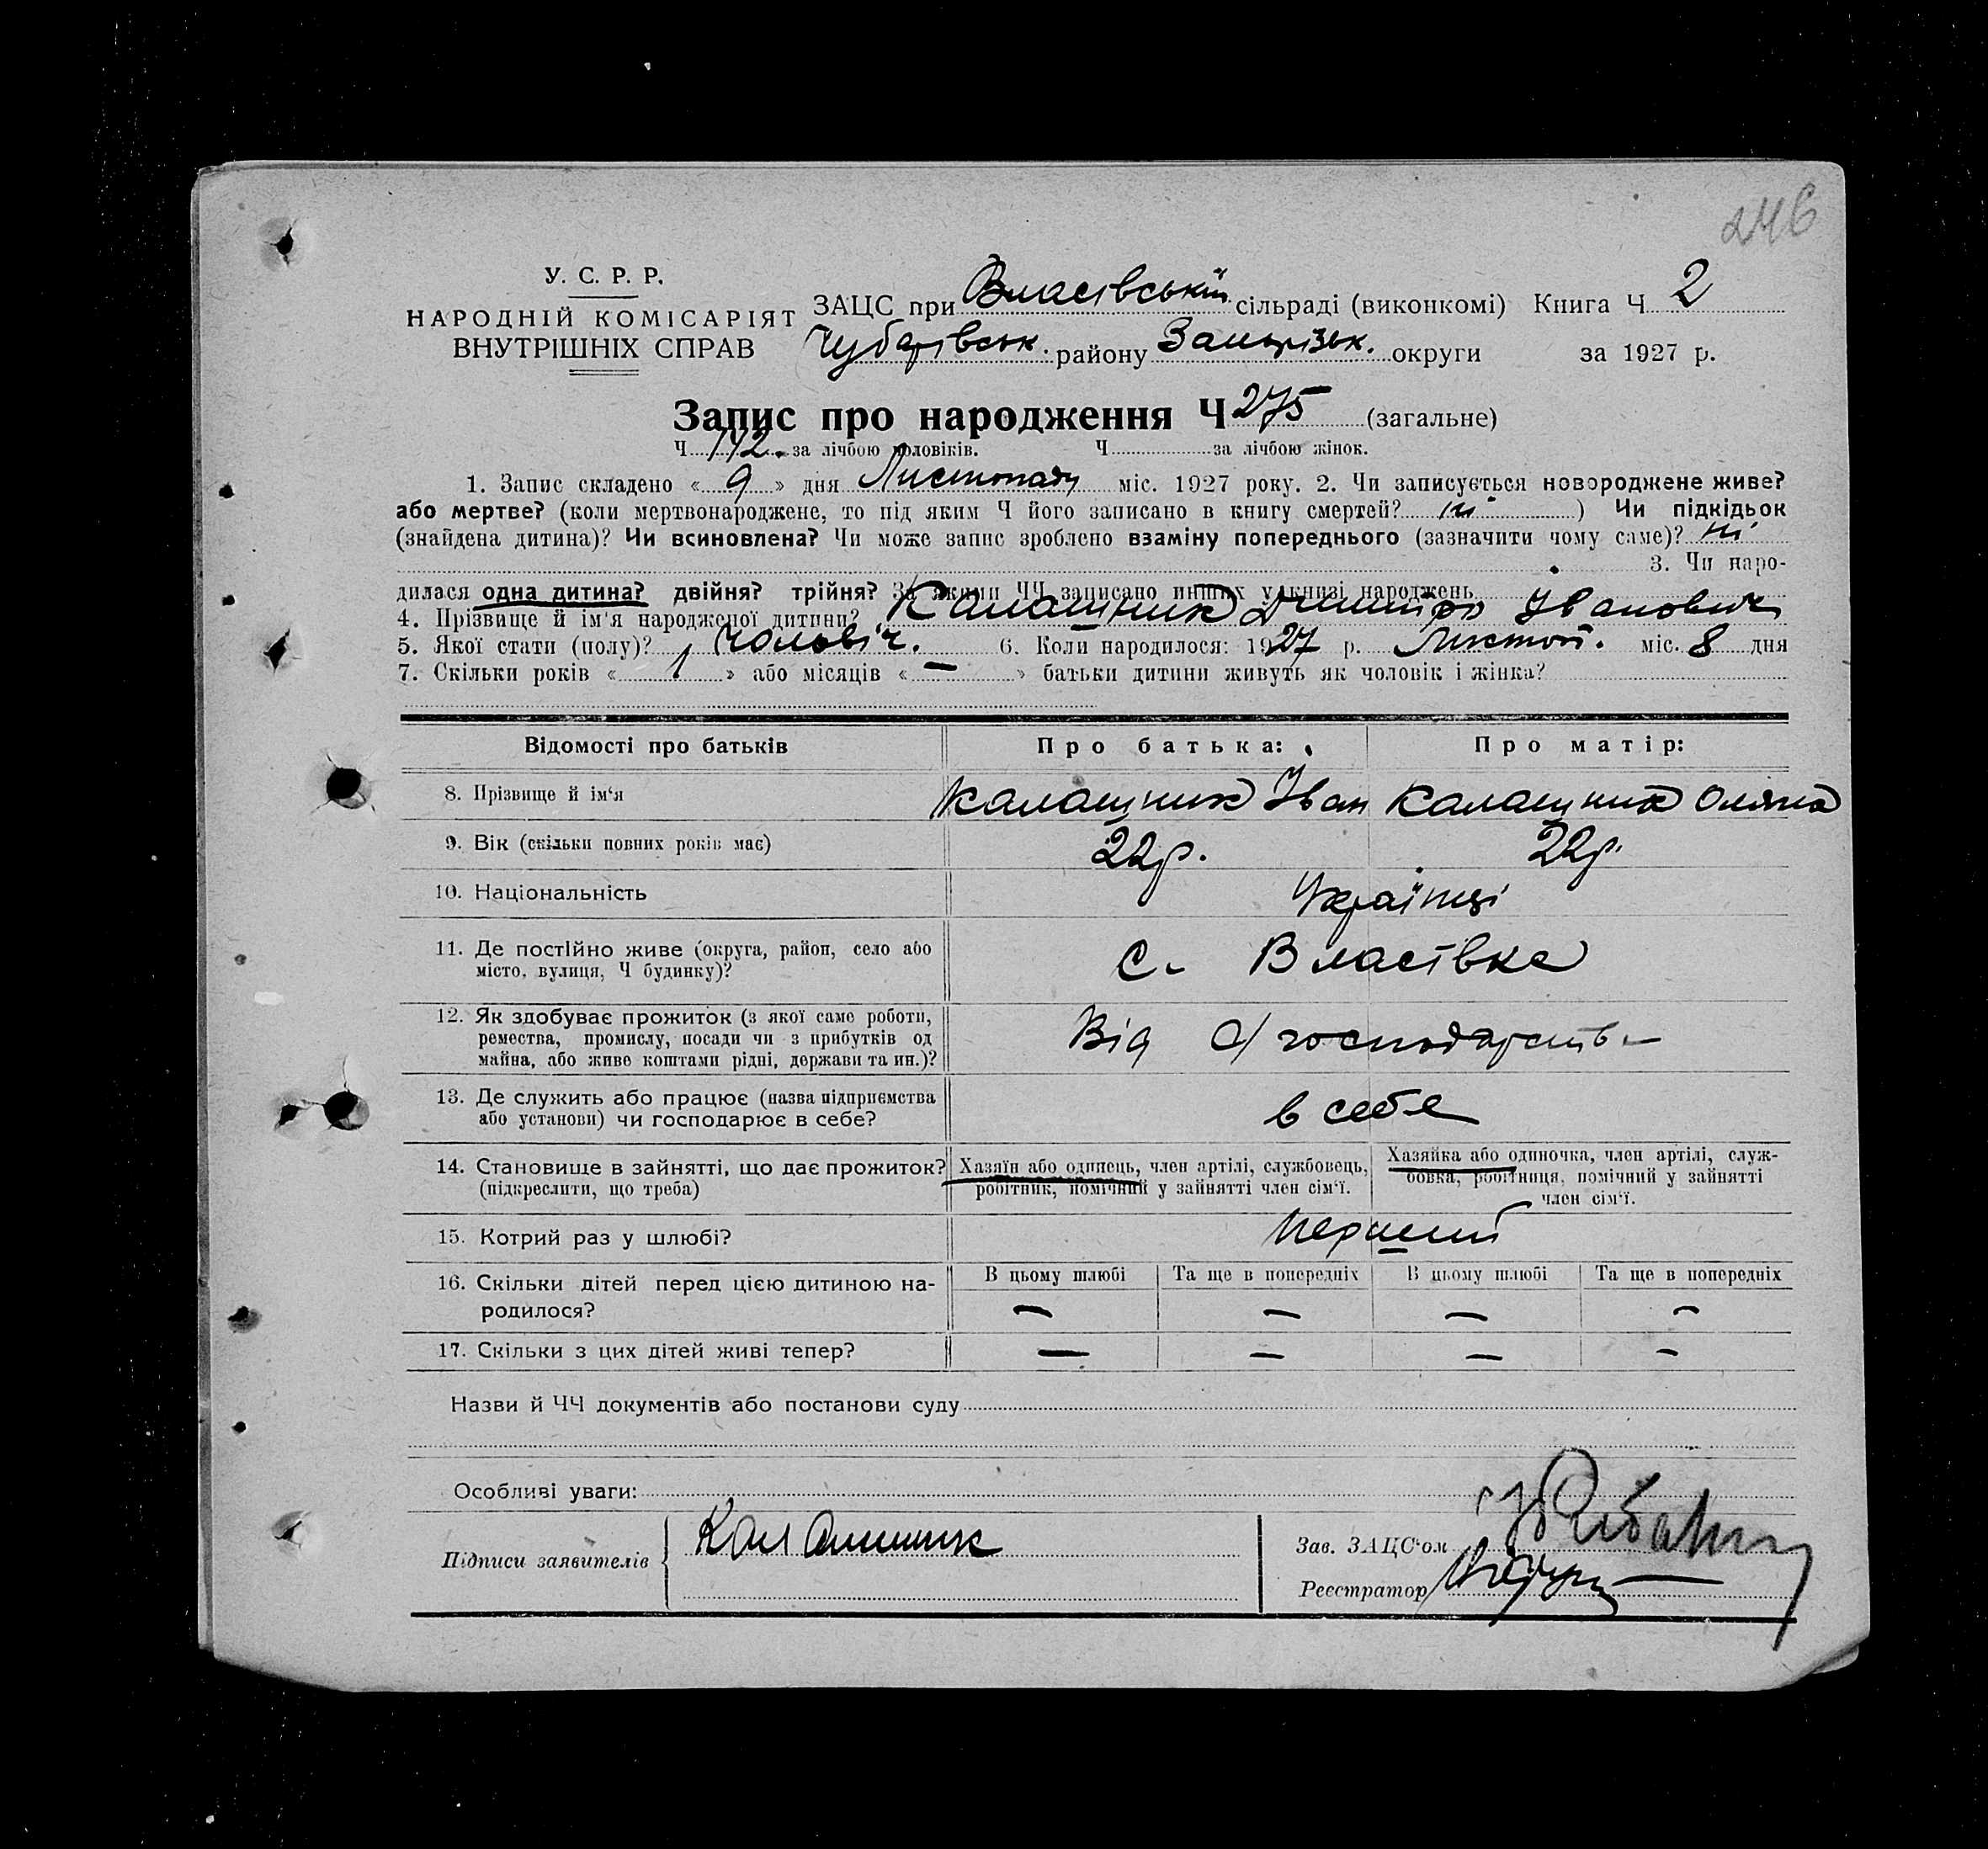 246
У. С. Р. Р.
НАРОДНІЙ КОМІСАРІЯТ
ВНУТРІШНІХ СПРАВ
ЗАЦС при Власівській сільраді (виконкомі) Книга Ч 2
Чубарівськ. району Запорізьк. округи за 1927 р.
Запис про народження Ч 275 (загальне)
Ч 142. за лічбою чоловіків. Ч за лічбою жінок.
1. Запис складено « 9 » дня Листопаду міс. 1927 року. 2. Чи записується новороджене живе?
або мертве? (коли мертвонароджене, то під яким Ч його записано в книгу смертей? ні ) Чи підкідьок
(знайдена дитина)? Чи всиновлена? Чи може запис зроблено взаміну попереднього (зазначити чому саме)? ні
3. Чи наро-
дилася одна дитина? двійня? трійня? За якими ЧЧ записано инших у книзі народжень
4. Прізвище й ім'я народженої дитини? Калашник Дмитро Іванович
5. Якої стати (полу)? чоловіч. 6. Коли народилося: 1927 р. Листоп. міс. 8 дня
7. Скільки років « 1 » або місяців « — » батьки дитини живуть як чоловік і жінка?
Відомості про батьків Про батька: Про матір:
8. Прізвище й ім'я Калашник Іван Калашник Оляна
9. Вік (скільки повних років має) 22 р. 22 р.
10. Національність Українці
11. Де постійно живе (округа, район, село або
місто, вулиця, Ч будинку)? с. Власівка
12. Як здобуває прожиток (з якої саме роботи,
ремества, промислу, посади чи з прибутків од
майна, або живе коштами рідні, держави та ин.)? Від с/господарств
13. Де служить або працює (назва підприємства
або установи) чи господарює в себе? в себе
14. Становище в зайнятті, що дає прожиток?
(підкреслити, що треба)
Хазяїн або одинець, член артілі, службовець,
робітник, помічний у зайнятті член сім'ї.
Хазяйка або одиночка, член артілі, служ-
бовка, робітниця, помічний у зайнятті
член сім'ї.
15. Котрий раз у шлюбі? перший
16. Скільки дітей перед цією дитиною на-
родилося?
В цьому шлюбі Та ще в попередніх В цьому шлюбі Та ще в попередніх
— — — —
17. Скільки з цих дітей живі тепер? — — — —
Назви й ЧЧ документів або постанови суду
Особливі уваги:
Підписи заявителів Калашник
Зав. ЗАЦС'ом
Реєстратор